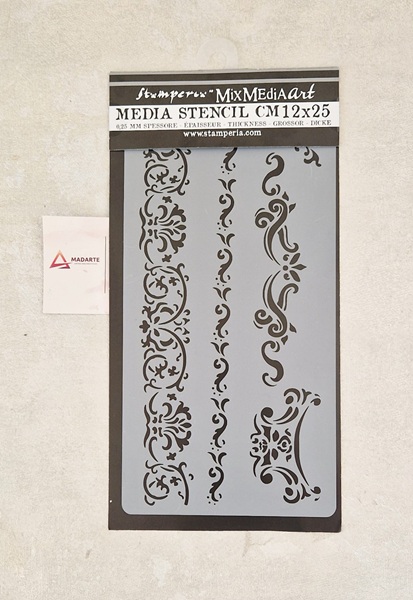 Stamperia™ MixMEdiAart
MEDIA STENCIL CM 12x25
0,25 MM SPESSORE - EPAISSEUR - THICKNESS - GROSSOR - DICKE
www.stamperia.com
MADARTE